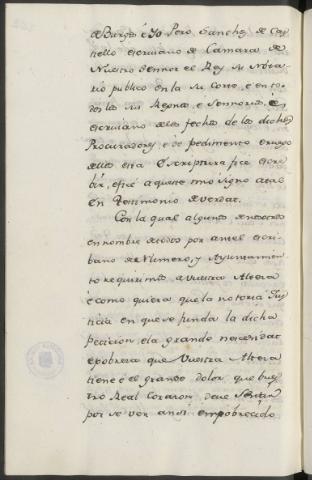 de Burgos é Yo Pero Sanchez de Cas
tiello escriuano de Camara de
Nuestro Sennor el Rey su Nota
rio publico en la su Corte, é en to
dos los sus Regnos, é Sennorios, é
escriuano delos fechos de los dichos
Procuradores é de pedimento é ruego
dellos esta Escriptura fice escre
bir, é fice aqueste mio signo atal
en Testimonio de verdat.
Con la qual algunos de nosotros
en nombre de todos por antel escri
bano de Numero, y Ayuntamien
to requirimos a vuestra Alteza
é como quiera que la notoria Jus
ticia en que se funda la dicha
peticion é la grande necesidat
é pobreza que Vuestra Alteza
tiene é el grande dolor que bues
tro Real Corazon deue Sentir
por se ver ansi empobrecido